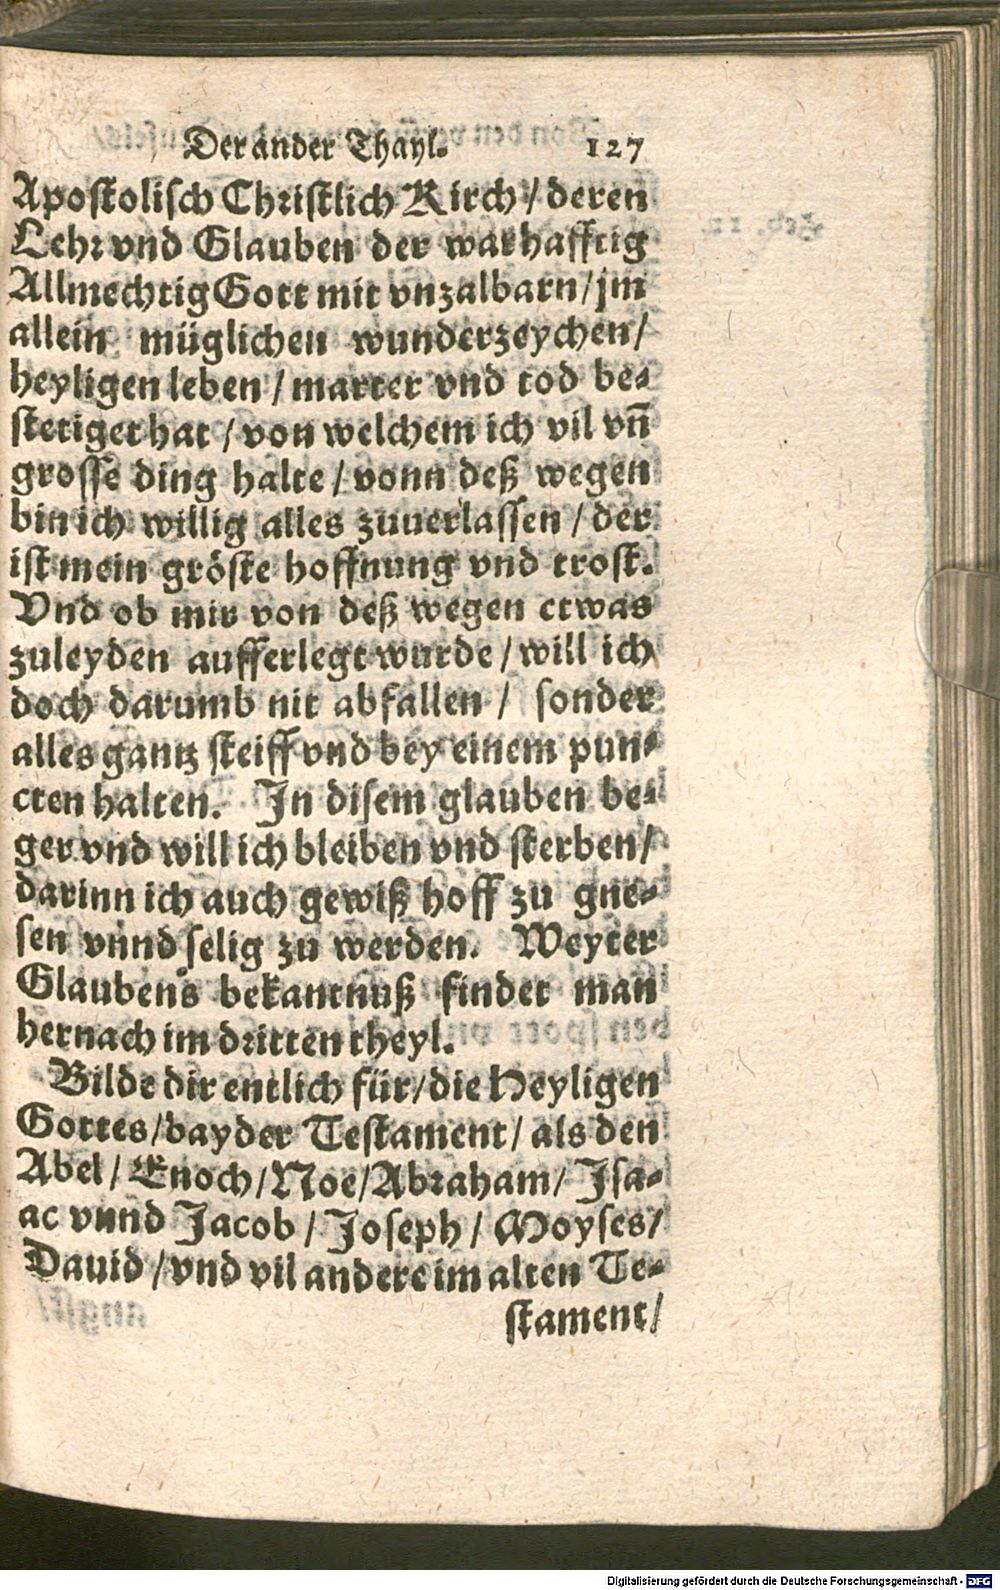 Der ander Thayl. 127
Apostolisch Christlich Kirch / deren
Lehr vnd Glauben der warhafftig
Allmechtig Gott mit vnzalbarn / jm
allein müglichen wunderzeychen /
heyligen leben / marter vnd tod be-
stetiget hat / von welchem ich vil vñ
grosse ding halte / vonn deß wegen
bin ich willig alles zuuerlassen / der
ist mein gröste hoffnung vnd trost.
Vnd ob mir von deß wegen etwas
zuleyden aufferlegt wurde / will ich
doch darumb nit abfallen / sonder
alles gantz steiff vnd bey einem pun-
cten halten. In disem glauben be-
ger vnd will ich bleiben vnd sterben /
darinn ich auch gewiß hoff zu gne-
sen vnnd selig zu werden. Weyter
Glaubens bekantnuß findet man
hernach im dritten theyl.
Bilde dir entlich für / die Heyligen
Gottes / bayder Testament / als den
Abel / Enoch / Noe / Abraham / Isa-
ac vnnd Jacob / Joseph / Moyses /
Dauid / vnd vil andere im alten Te-
stament /
Digitalisierung gefördert durch die Deutsche Forschungsgemeinschaft - DFG